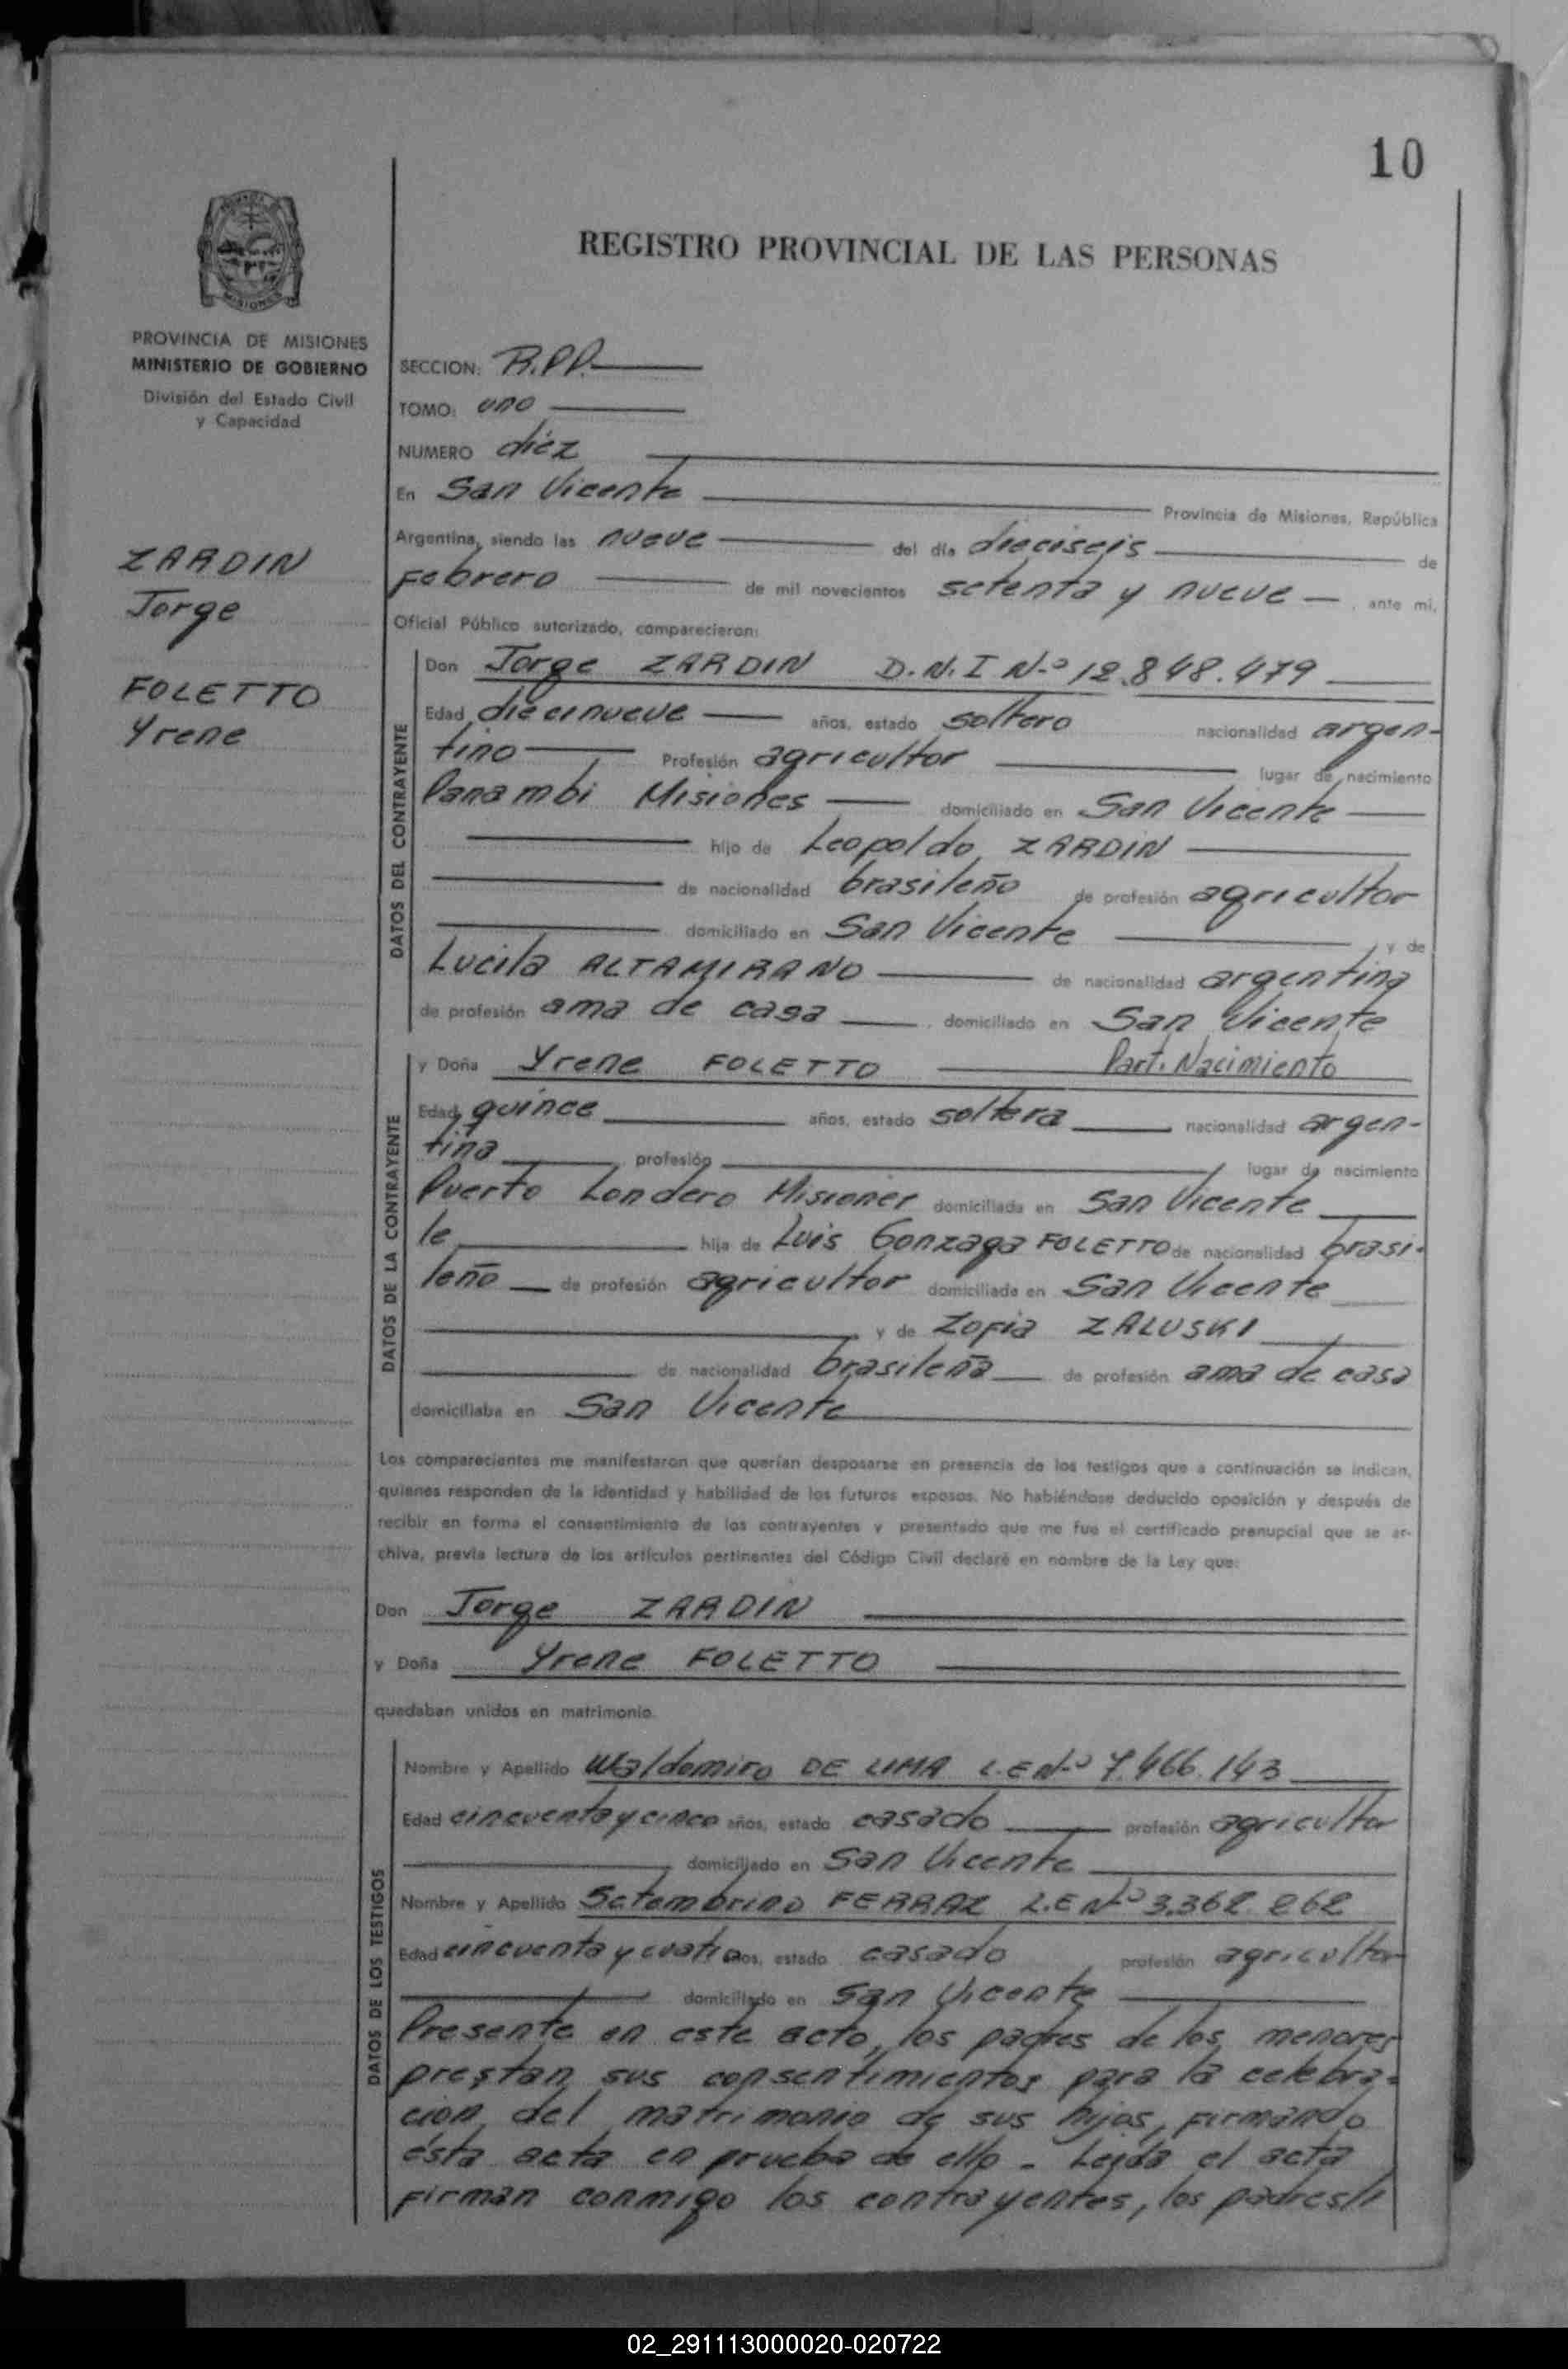 10
REGISTRO PROVINCIAL DE LAS PERSONAS
MISIONES
PROVINCIA DE MISIONES
MINISTERIO DE GOBIERNO
División del Estado Civil
y Capacidad
ZARDIN
Jorge
FOLETTO
Yrene
SECCION: R.P.P.
TOMO: uno
NUMERO diez
En San Vicente Provincia de Misiones, República
Argentina, siendo las nueve del día dieciseis de
Febrero de mil novecientos setenta y nueve, ante mi,
Oficial Público autorizado, comparecieron:
DATOS DEL CONTRAYENTE
Don Jorge ZARDIN D.N.I Nº 12.848.479
Edad diecinueve años, estado soltero nacionalidad argen-
tino Profesión agricultor lugar de nacimiento
Panambi Misiones domiciliado en San Vicente
hijo de Leopoldo ZARDIN
de nacionalidad brasileño de profesión agricultor
domiciliado en San Vicente y de
Lucila ALTAMIRANO de nacionalidad argentina
de profesión ama de casa, domiciliado en San Vicente
DATOS DE LA CONTRAYENTE
y Doña Yrene FOLETTO Part. Nacimiento
Edad quince años, estado soltera nacionalidad argen-
tina profesión lugar de nacimiento
Puerto Londero Misiones domiciliada en San Vicente
le hija de Luis Gonzaga FOLETTO de nacionalidad brasi-
leño de profesión agricultor domiciliada en San Vicente
y de Zofia ZALUSKI
de nacionalidad brasileña de profesión ama de casa
domiciliaba en San Vicente
Los comparecientes me manifestaron que querían desposarse en presencia de los testigos que a continuación se indican,
quienes responden de la identidad y habilidad de los futuros esposos. No habiéndose deducido oposición y después de
recibir en forma el consentimiento de los contrayentes y presentado que me fue el certificado prenupcial que se ar-
chiva, previa lectura de los artículos pertinentes del Código Civil declaré en nombre de la Ley que:
Don Jorge ZARDIN
y Doña Yrene FOLETTO
quedaban unidos en matrimonio.
DATOS DE LOS TESTIGOS
Nombre y Apellido Waldomiro DE LIMA L.E Nº 7.466.143
Edad cincuenta y cinco años, estado casado profesión agricultor
domiciliado en San Vicente
Nombre y Apellido Setembrino FERRAZ L.E Nº 3.362.262
Edad cincuenta y cuatro años, estado casado profesión agricultor
domiciliado en San Vicente
Presente en este acto, los padres de los menores
prestan sus consentimientos para la celebra-
cion del matrimonio de sus hijos, firmando
ésta acta en prueba de ello - Leida el acta
firman conmigo los contrayentes, los padres//
02_291113000020-020722